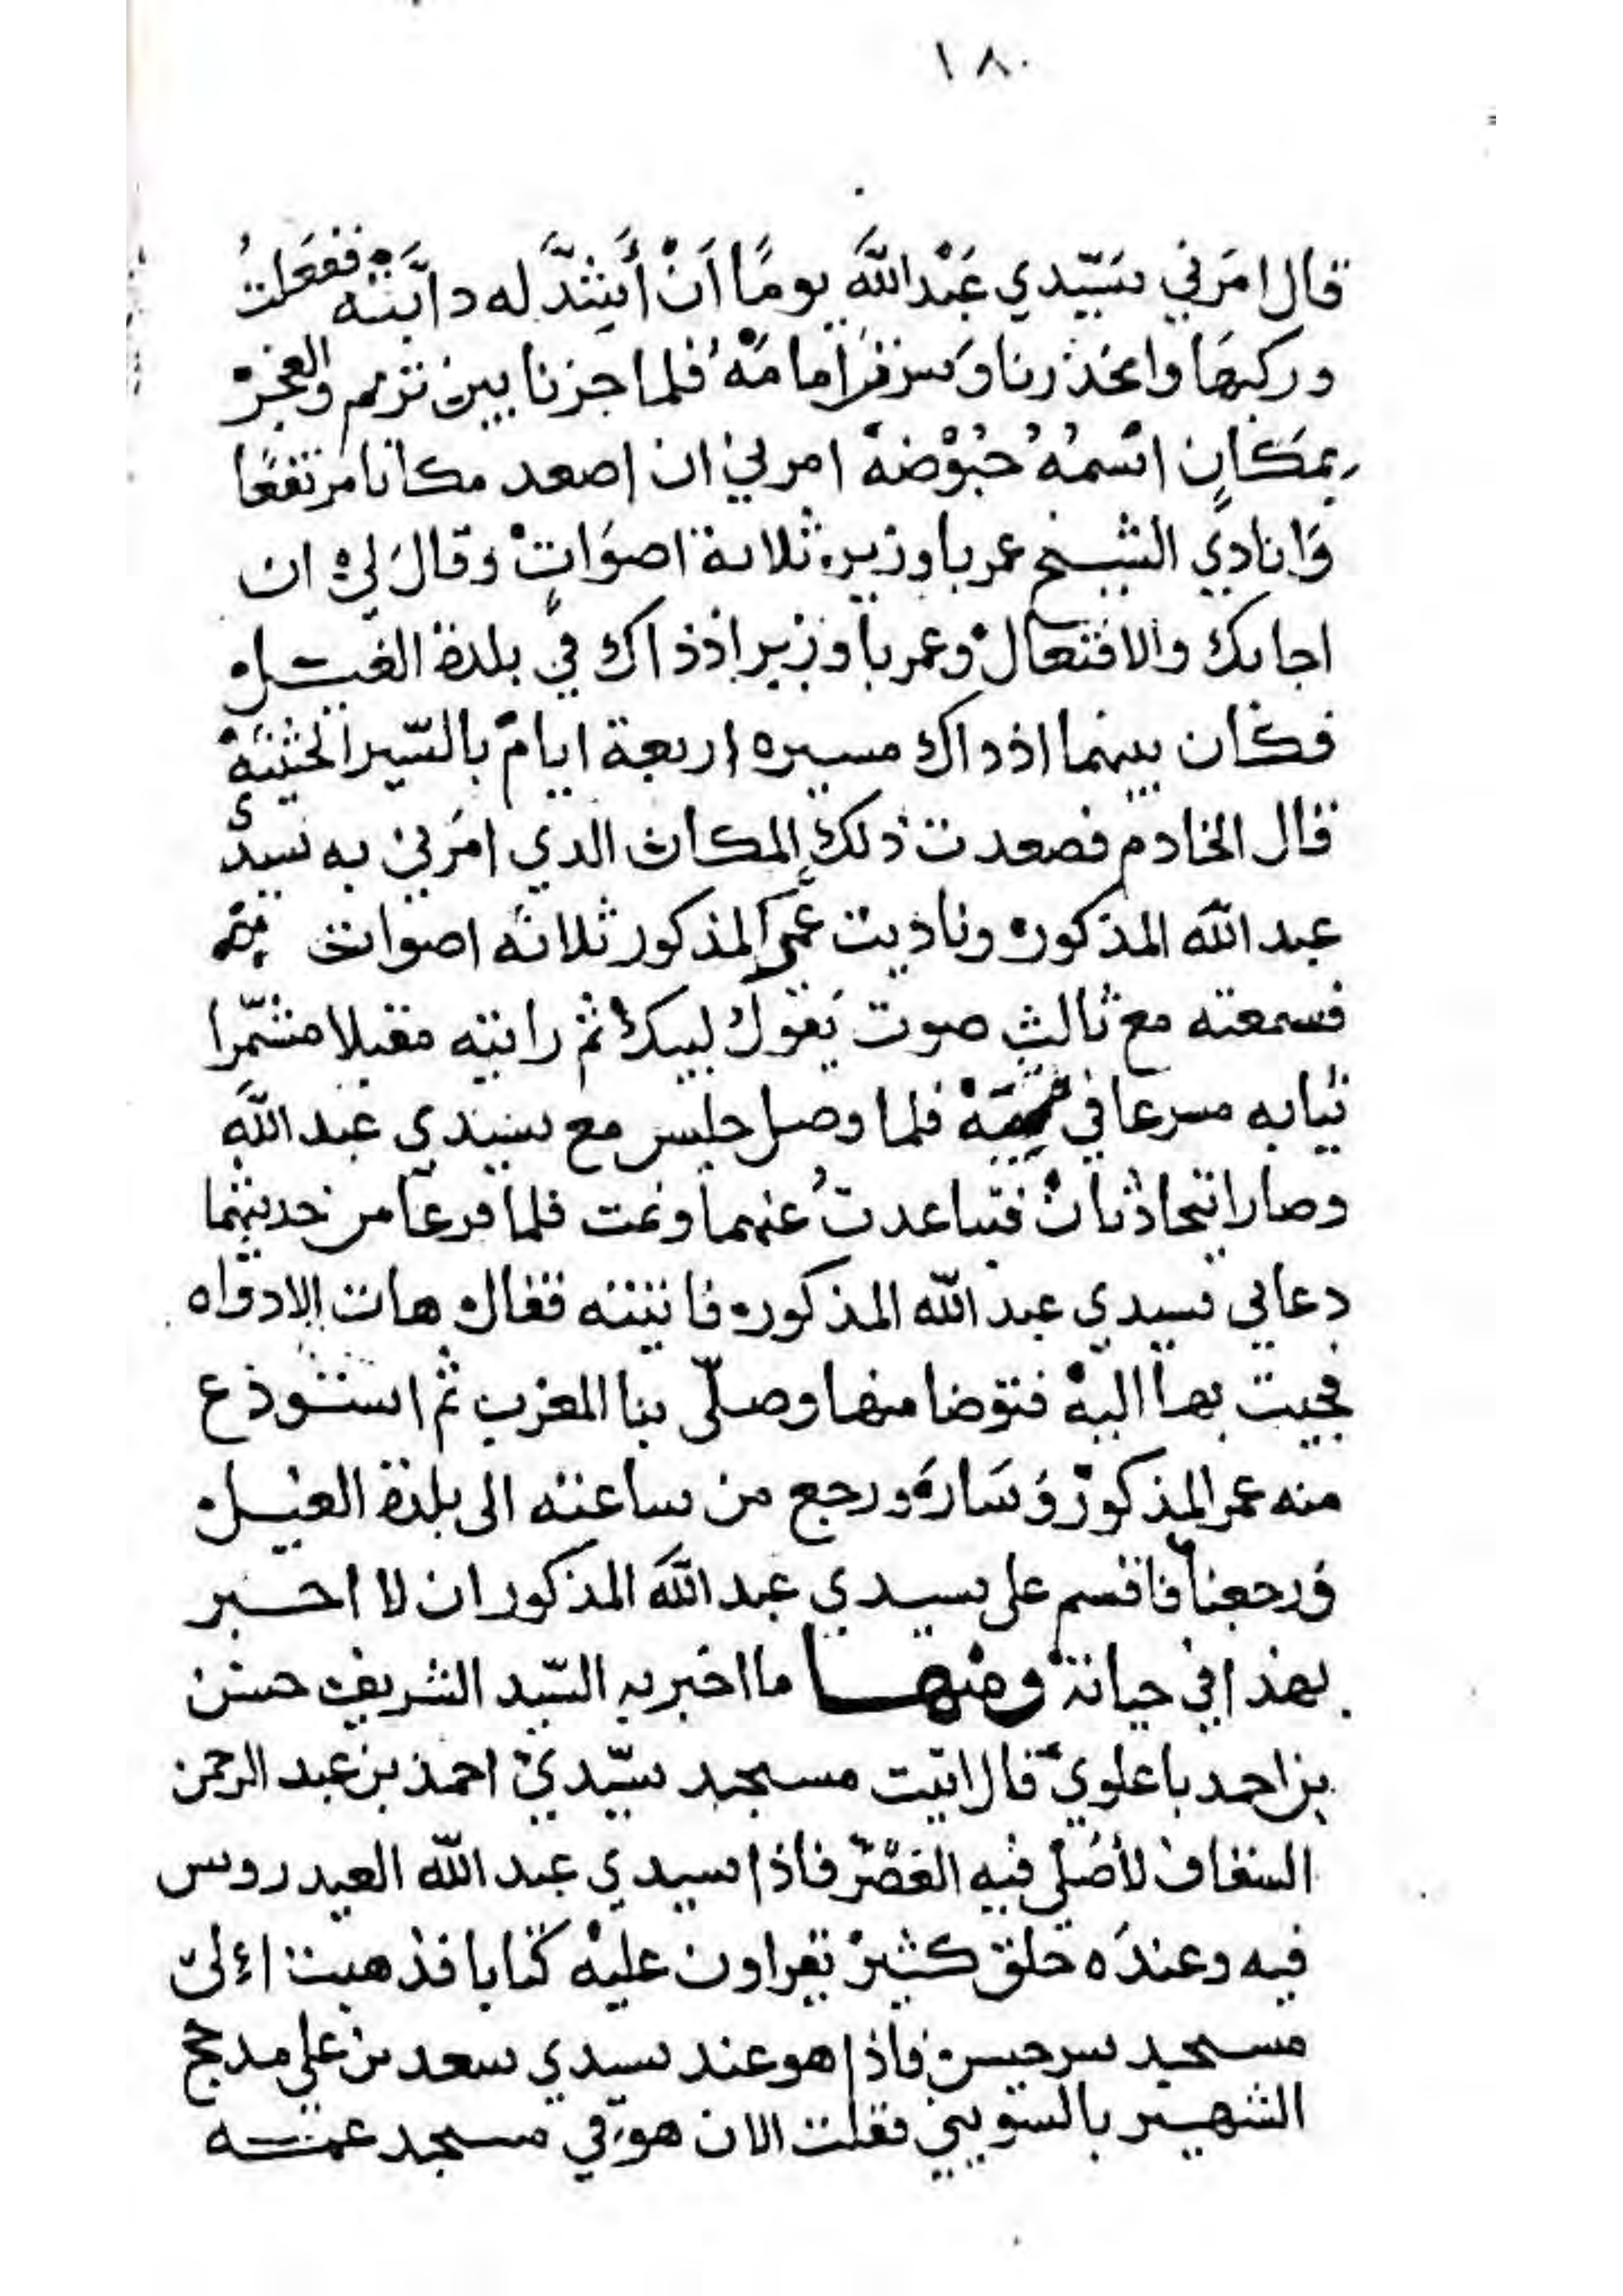 ١٨٠
قال امَرني سَيّدي عَبْدالله يومًا اَنْ أَشِدَّ له دابَّته ففعَلتُ
وركبهَا وانحَدرنا وَسرت اَمامَهْ فلما جزنا بين تريم والعجز
بمَكانٍ اسْمهُ حُبُوْضهْ امرني ان اصعد مكانا مرتفعًا
وَانادي الشيخ عمر باوزير ثلاثة اصوَاتٍ وقالَ لي ان
اجابك والا فتعال وعمر باوزير اذذاك في بلدة الغيل
فكان بينهما اذذاك مسيره اربعة ايام بالسّير الحثيثهْ
قال الخادم فصعدت ذلك المكان الذي امَرني به سيدي
عبد الله المذكور وناديت عمر المذكور ثلاثه اصوات
فسمعته مع ثالثِ صوت يَقول لبيك ثم رايته مقبلا مشمّرا
ثيابه مسرعا في فلما وصل جلس مع سيدي عبد الله
وصارا يتحادثان فتباعدتُ عنهما ونمت فلما فرغا من حديثهما
دعاني سيدي عبد الله المذكور فاتيته فقال هات الادواه
فجيت بها اليهْ فتوضا منها وصلّى بنا المغرب ثم استودع
منه عمر المذكور وَسَارَ ورجع من ساعته الى بلدة الغيل
وَرجعنا فاقسم على سيدي عبد الله المذكور ان لا اخبر
بهذا في حياته ومنها ما اخبر به السّيد الشريف حسن
بن احمد باعلوي قال اتيت مسجد سيّدي احمد بن عبد الرحمن
السقاف لأصَلي فيه العَصْر فاذا سيدي عبد الله العيدروس
فيه وعندَه خلق كثير يقراون عليْه كتابا فذهبت الى
مسجد سرجيس فاذا هو عند سيدي سعد بن علي مدحج
الشهير بالسويني فقلت الان هو في مسجد عمه